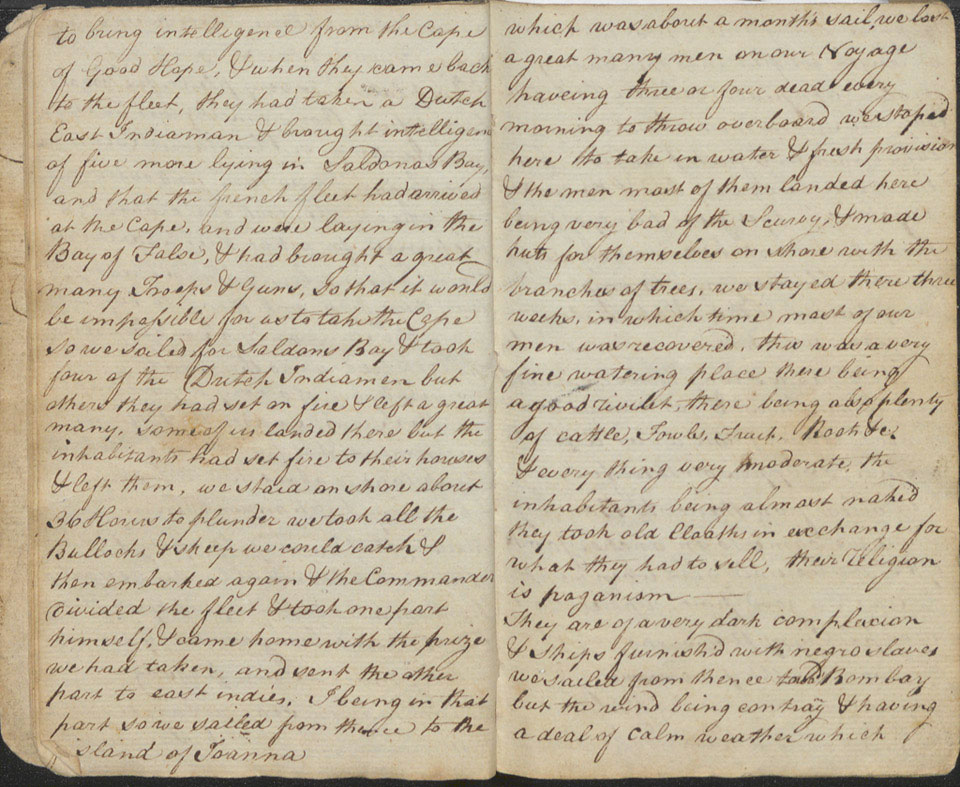 to bring intelligence from the Cape
of Good Hope, & when they came back
to the fleet, they had taken a Dutch
East Indiaman & brought intelligen
of five more lying in Saldonas Bay,
and that the french fleet had arrived
at the Cape, and were laying in the
Bay of False, & had brought a great
many Troops & Guns, so that it would
be impossible for us to take the Cape
so we sailed for Saldons Bay & took
four of the Dutch Indiamen but
others they had set on fire & left a great
many. Some of us landed there but the
inhabitants had set fire to their houses
& left them, we staid on shore about
36 Hours to plunder we took all the
Bullocks & sheep we could catch &
then embarked again & the Commander
divided the fleet & took one part
himself, & came home with the prize
we had taken, and sent the other
part to east indies, I being in that
part so we sailed from thence to the
island of Joanna
which was about a month's sail, we lost
a great many men on our Voyage
haveing three or four dead every
morning to throw overboard we stoped
here to take in water & fresh provision
& the men most of them landed here
being very bad of the Scurvy, & made
huts for themselves on shore with the
branches of trees, we stayed there three
weeks, in which time most of our
men was recovered. this was a very
fine watering place there being
a good rivilet, there being also plenty
of cattle, Fowls, Fruit. Roots &c
& every thing very moderate, the
inhabitants being almost naked
they took old Cloaths in exchange for
what they had to sell, their religion
is paganism
They are of a very dark complacion
& Ships furnish'd with negro slaves
we sailed from thence to Bombay
but the wind being contray & having
a deal of calm weather which